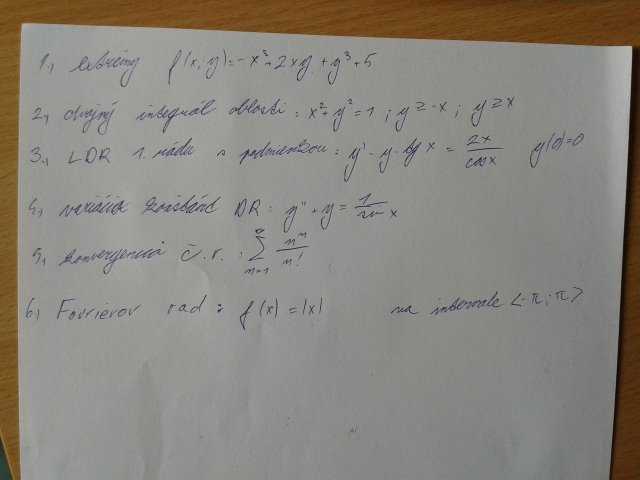 1., extrémy f(x,y)=-x³+2xy+y³+5
2., dvojný integrál oblasti: x²+y²=1; y≥-x; y≥x
3., LDR 1. rádu s podmienkou: y' - y·tg x = 2x/cosx y(0)=0
4., variácia konštánt DR: y''+y = 1/sin x
5., konvergencia č.r.: ∑_{n=1}^{∞} n^n/n!
6, Fourierov rad: f(x)=|x| na intervale <-π;π>